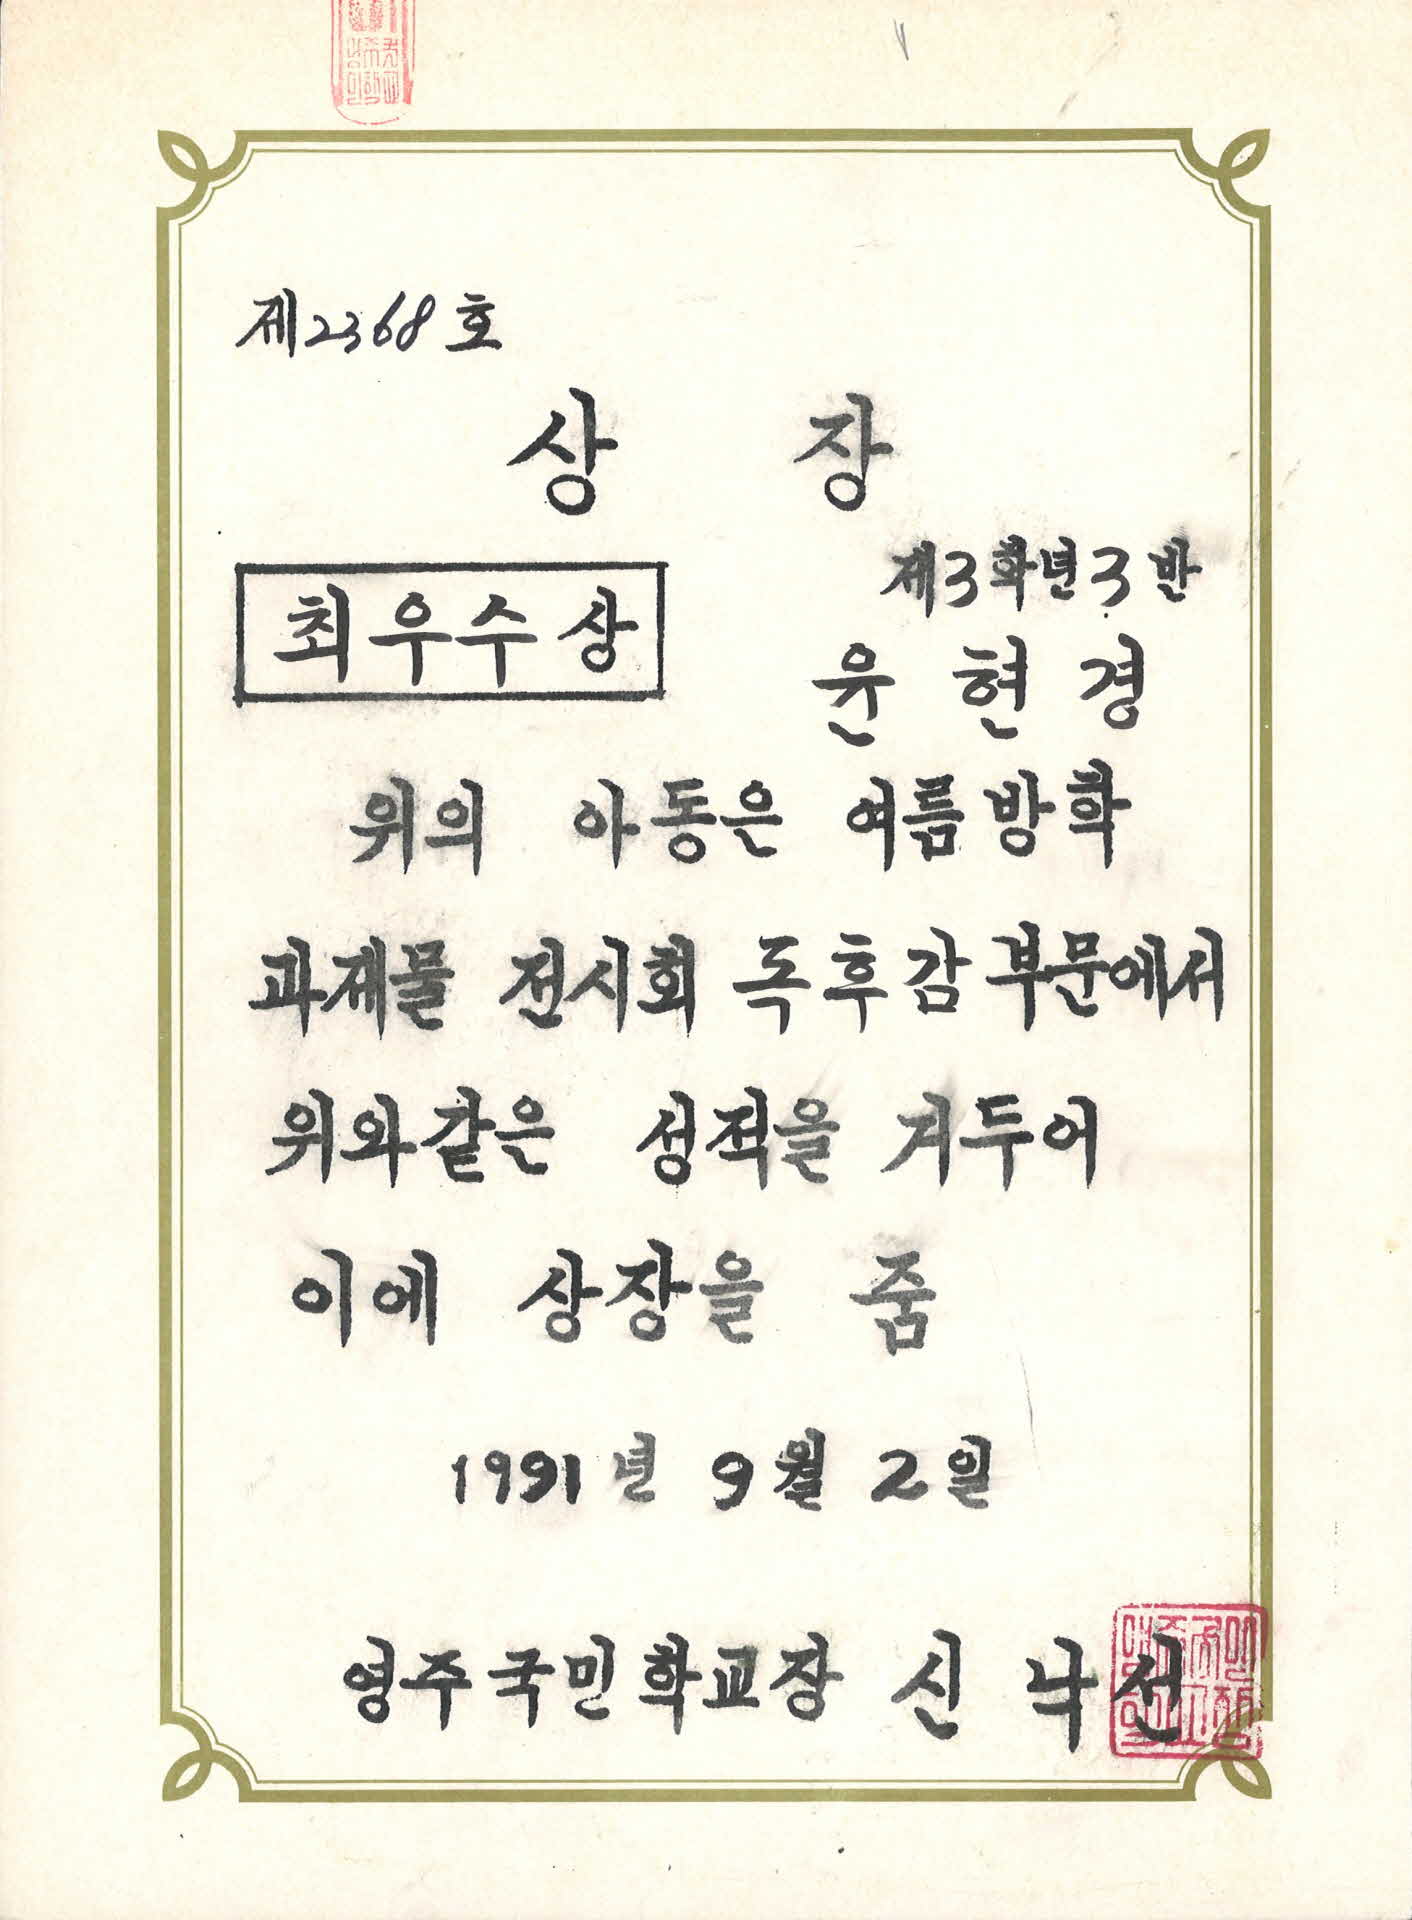 제2368호
상 장
제3학년3반
최우수상
윤현경
위의 아동은 여름방학
과제물 전시회 독후감 부문에서
위와같은 성적을 거두어
이에 상장을 줌
1991년 9월 2일
영주국민학교장 신낙선